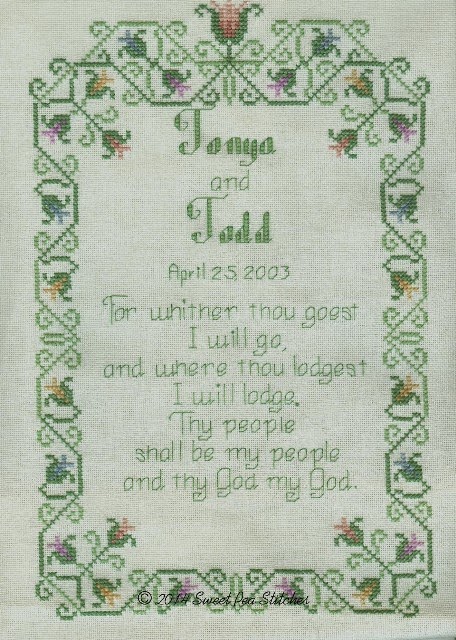 Tonya
and
Todd
April 25, 2003
For whither thou goest
I will go,
and where thou lodgest
I will lodge.
Thy people
shall be my people
and thy God my God.
© 2014 Sweet Pea Stitches